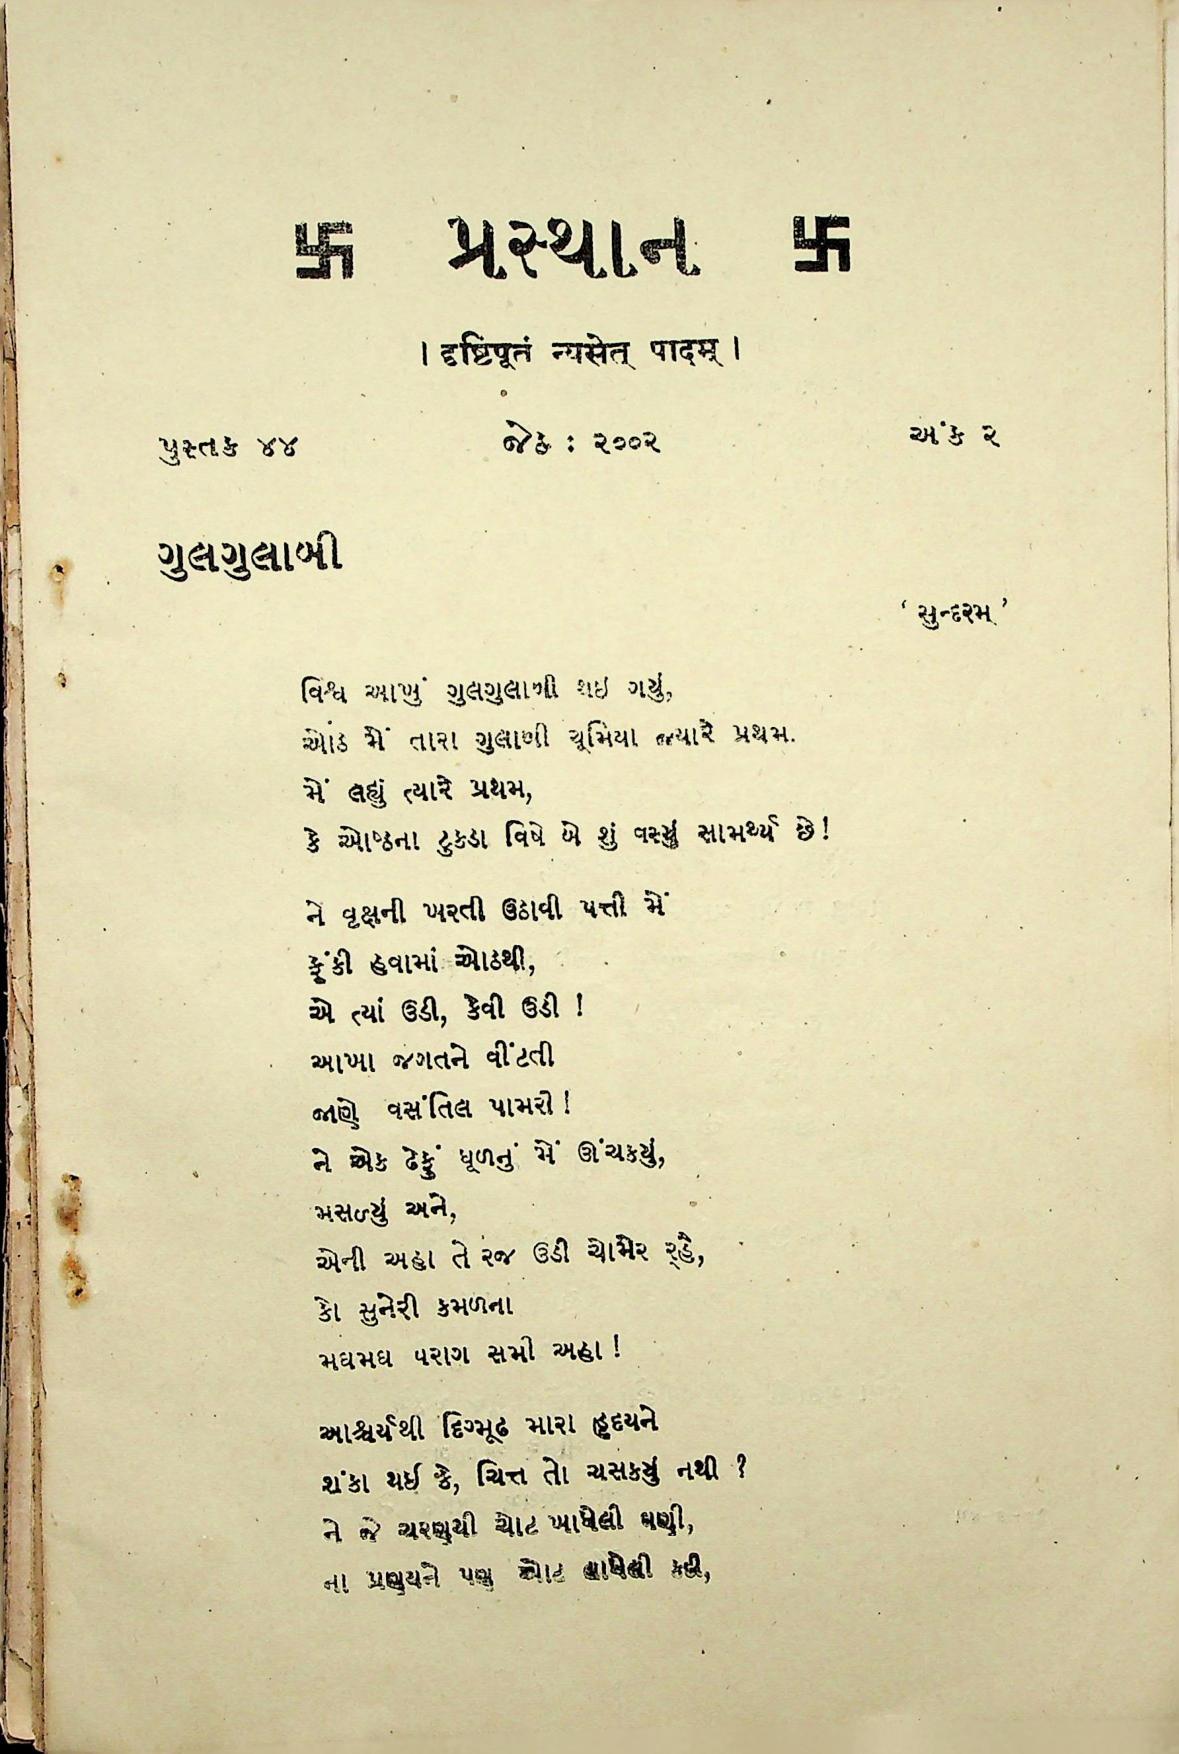 卐 પ્રસ્થાન 卐
। दृष्टिपूतं न्यसेत् पादम् ।
પુસ્તક ૪૪ જેઠ : ૨૦૦૨ અંક ૨
ગુલગુલાબી
‘ સુન્દરમ્ ’
વિશ્વ આખું ગુલગુલાબી થઇ ગયું,
ઓઠ મેં તારા ગુલાબી ચૂમિયા જ્યારે પ્રથમ.
મેં લહ્યું ત્યારે પ્રથમ,
કે ઓષ્ઠના ટુકડા વિષે બે શું વસ્યું સામર્થ્ય છે!
ને વૃક્ષની ખરતી ઉઠાવી પત્તી મેં
ફૂંકી હવામાં ઓઠથી,
એ ત્યાં ઉડી, કેવી ઉડી !
આખા જગતને વીંટતી
જાણે વસંતિલ પામરી !
ને એક ઢેફું ધૂળનું મેં ઊંચકર્યું,
મસળ્યું અને,
એની અહા તે રજ ઉડી ચોમેર ર્‌હૈ,
કો સુનેરી કમળના
મઘમઘ પરાગ સમી અહા !
આશ્ચર્યથી દિગ્મૂઢ મારા હૃદયને
શંકા થઈ કે, ચિત્ત તો ચસકર્યું નથી ?
ને જે ચરણથી ચોટ ખાધેલી ઘણી,
ના પ્રણયને પણ ચોટ લાધેલી કદી,